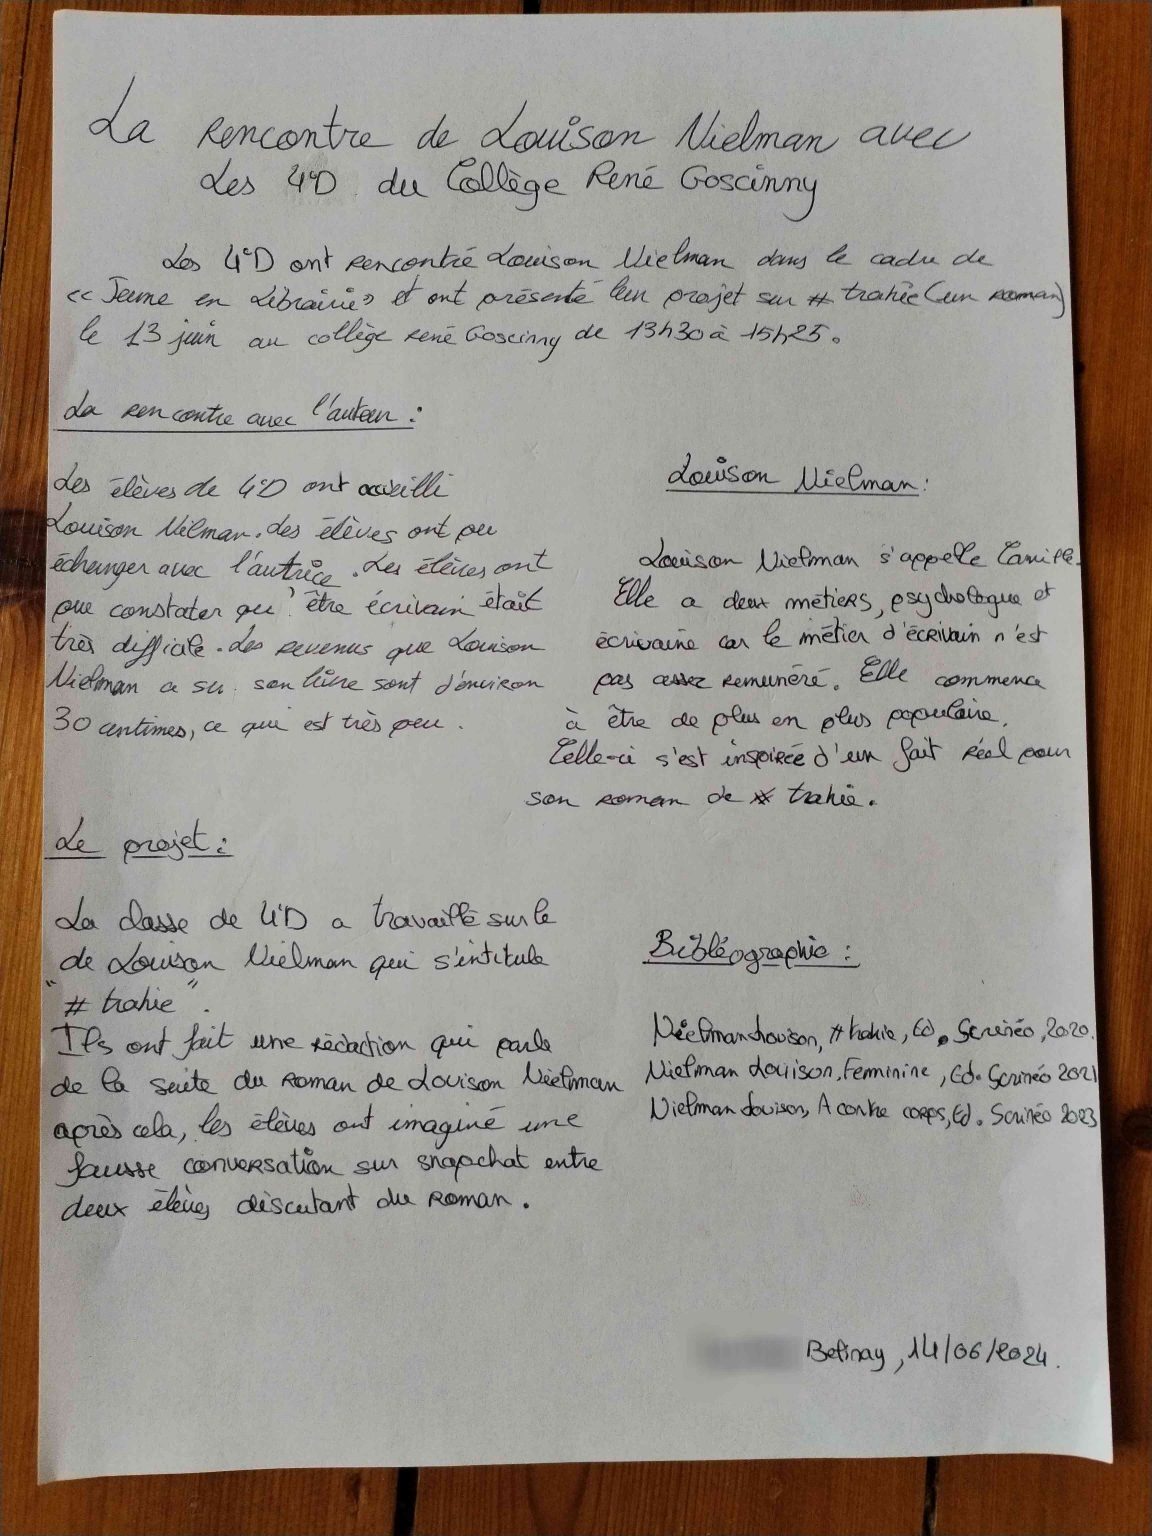 La rencontre de Louison Nielman avec
Les 4°D du Collège René Goscinny
Les 4°D ont rencontré Louison Nielman dans le cadre de
« Jeune en Librairie » et ont présenté leur projet sur # trahie (un roman)
le 13 juin au collège René Goscinny de 13h30 à 15h25.
La rencontre avec l'auteur :
Les élèves de 4°D ont accueilli
Louison Nilman. Les élèves ont pu
échanger avec l'autrice. Les élèves ont
pu constater qu'être écrivain était
très difficile. Les revenus que Louison
Nielman a sur son livre sont d'environ
30 centimes, ce qui est très peu.
Louison Nielman :
Louison Nielman s'appelle Camille.
Elle a deux métiers, psychologue et
écrivaine car le métier d'écrivain n'est
pas assez remunéré. Elle commence
à être de plus en plus populaire.
Celle-ci s'est inspirée d'un fait réel pour
son roman de # trahie.
Le projet :
La classe de 4°D a travaillé sur le
de Louison Nielman qui s'intitule
"# trahie".
Ils ont fait une rédaction qui parle
de la suite du roman de Louison Nielman
après cela, les élèves ont imaginé une
fausse conversation sur snapchat entre
deux élèves discutant du roman.
Bibléographie :
Nielman Louison, # trahie, Ed. Scrinéo, 2020.
Nielman Louison, Feminine, Ed. Scrinéo 2021
Nielman Louison, A contre corps, Ed. Scrinéo 2023
Belinay, 14/06/2024.